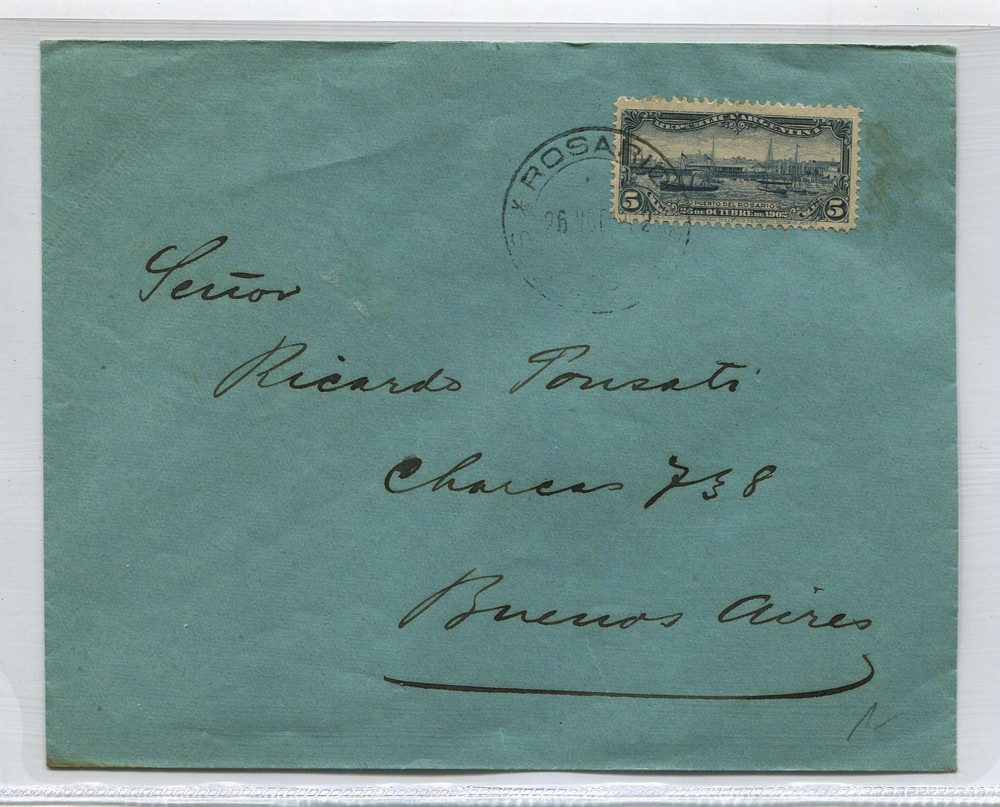 REPUBLICA ARGENTINA
5 PUERTO DEL ROSARIO 5
26 DE OCTUBRE DE 1902
ROSARIO
26 OCT 02
Señor
Ricardo Tonsati
Charcas 738
Buenos Aires